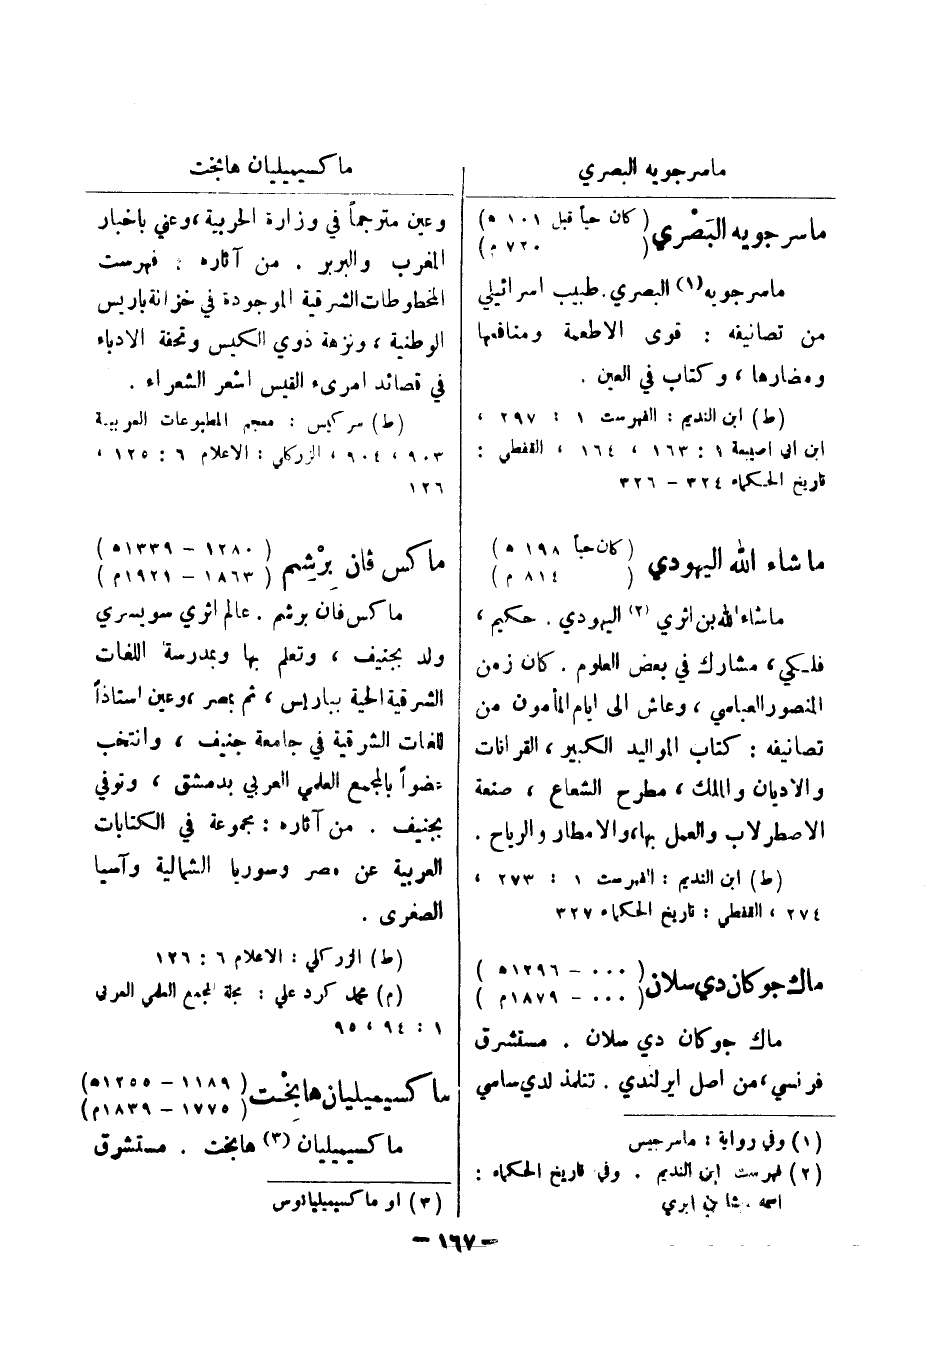 ماسرجويه البصري
ماسرجويه البَصْري (كان حياً قبل ١٠١ ه)
(٧٢٠ م)
ماسرجويه (١) البصري. طبيب اسرائيلي
من تصانيفه : قوى الاطعمة ومنافعها
ومضارها ، وكتاب في العين .
(ط) ابن النديم : الفهرست ١ : ٢٩٧ ،
ابن ابي اصيبعة ١ : ١٦٣ ، ١٦٤ ، القفطي :
تاريخ الحكماء ٣٢٤ – ٣٢٦
ماشاء الله اليهودي (كان حياً ١٩٨ ه)
(٨١٤ م)
ماشاء الله بن اثري (٢) اليهودي . حكيم ،
فلكي ، مشارك في بعض العلوم . كان زمن
المنصور العباسي ، وعاش الى ايام المأمون من
تصانيفه : كتاب المواليد الكبير ، القرانات
والاديان والملك ، مطرح الشعاع ، صنعة
الاصطرلاب والعمل بها ، والامطار والرياح .
(ط) ابن النديم : الفهرست ١ : ٢٧٣ ،
٢٧٤ ، القفطي : تاريخ الحكماء ٣٢٧
ماك جوكان دي سلان (٠٠٠ – ١٢٩٦ ه)
(٠٠٠ – ١٨٧٩ م)
ماك جوكان دي سلان . مستشرق
فرنسي ، من اصل ايرلندي . تتلمذ لدي ساسي
(١) وفي رواية : ماسرجيس
(٢) فهرست ابن النديم . وفي تاريخ الحكماء :
اسمه ابري
ماكسيميليان هابخت
وعين مترجماً في وزارة الحربية ، وعني باخبار
المغرب والبربر . من آثاره : فهرست
المخطوطات الشرقية الموجودة في خزانة باريس
الوطنية ، ونزهة ذوي الكيس وتحفة الادباء
في قصائد امرىء القيس اشعر الشعراء .
(ط) سركيس : معجم المطبوعات العربية
٩٠٣ ، ٩٠٤ ، الزركلي : الاعلام ٦ : ١٢٥ ،
١٢٦
ماكس ڤان بِرْشِم (١٢٨٠ – ١٣٣٩ ه)
(١٨٦٣ – ١٩٢١ م)
ماكس فان برشم . عالم اثري سويسري
ولد بجنيف ، وتعلم بها وبمدرسة اللغات
الشرقية الحية بباريس ، ثم بمصر ، وعين استاذاً
للغات الشرقية في جامعة جنيف ، وانتخب
عضواً بالمجمع العلمي العربي بدمشق ، وتوفي
بجنيف . من آثاره : مجموعة في الكتابات
العربية عن مصر وسوريا الشمالية وآسيا
الصغرى .
(ط) الزركلي : الاعلام ٦ : ١٢٦
(م) محمد كرد علي : مجلة المجمع العلمي العربي
١ : ٩٤ ، ٩٥
ماكسيميليان هابِخْت (١١٨٩ – ١٢٥٥ ه)
(١٧٧٥ – ١٨٣٩ م)
ماكسيميليان (٣) هابخت . مستشرق
(٣) او ماكسيميليانوس
– ١٦٧ –